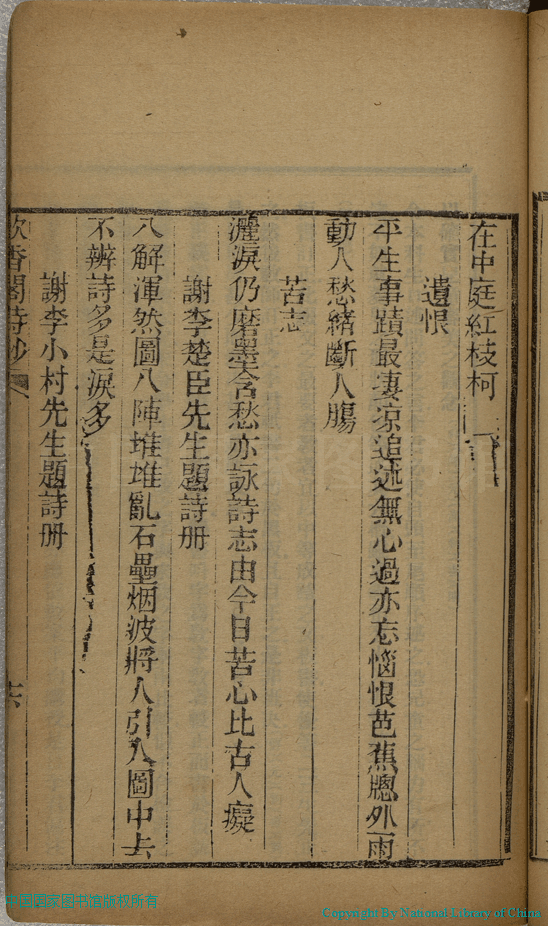 在中庭紅枝柯
遺恨
平生事蹟最凄凉追述無心過亦忘惱恨芭蕉牕外雨
動人愁緒斷人腸
苦志
灑淚仍磨墨含愁亦詠詩志由今日苦心比古人癡
謝李楚臣先生題詩册
八解渾然圖八陣堆堆亂石壘烟波將人引入圖中去
不辨詩多是淚多
謝李小村先生題詩册
吹香閣詩鈔
十六
中国国家图书馆版权所有
Copyright By National Library of China